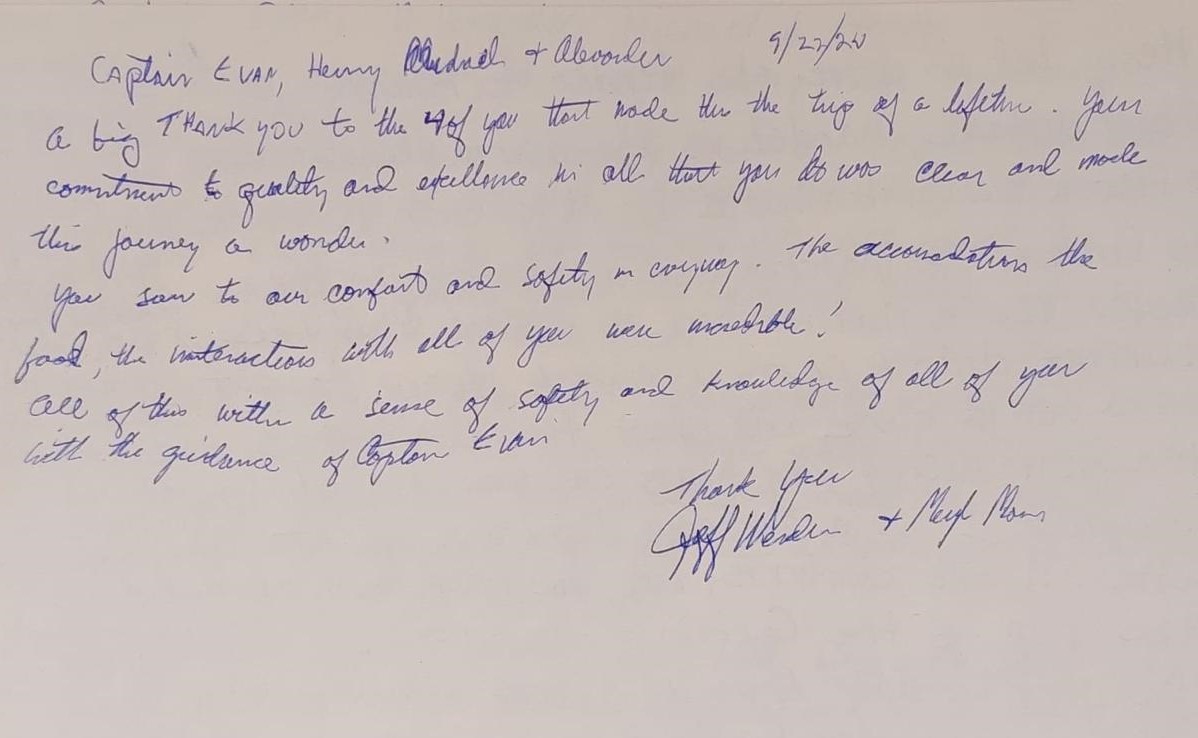 Captain Evan, Henry & Alexander 9/22/24
A big THANK YOU to the 4 of you that made this the trip of a lifetime. Your
comitment to quality and excellence in all that you do was clear and made
this journey a wonder.
You saw to our comfort and safety in everyway. The accomodations the
food, the interactions with all of you were incredible!
All of this with a sense of safety and knowledge of all of you
with the guidance of Captain Evan
Thank you
Jeff & Meryl